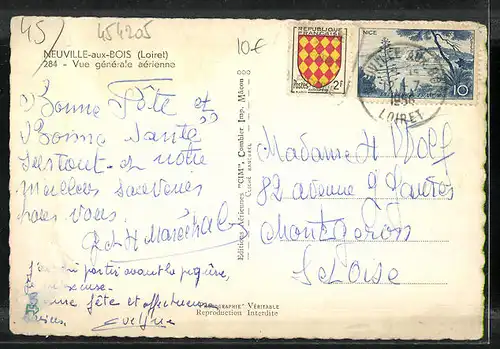 45)
454205
10€
NEUVILLE-aux-BOIS (Loiret)
284 - Vue générale aérienne
REPUBLIQUE FRANÇAISE
2F
NICE
10
NEUVILLE AUX BOIS
LOIRET
Bonne Fête et
Bonne Santé
surtout et notre
meilleur souvenir
pour vous.
G et H Maréchal
Editions Aériennes "CIM", Combier Imp. Mâcon
Madame H Wolf
82 avenue
Montgeron
S et Oise
partir avant la piqûre,
fête et affectueux
Evelyne
Véritable
Reproduction Interdite